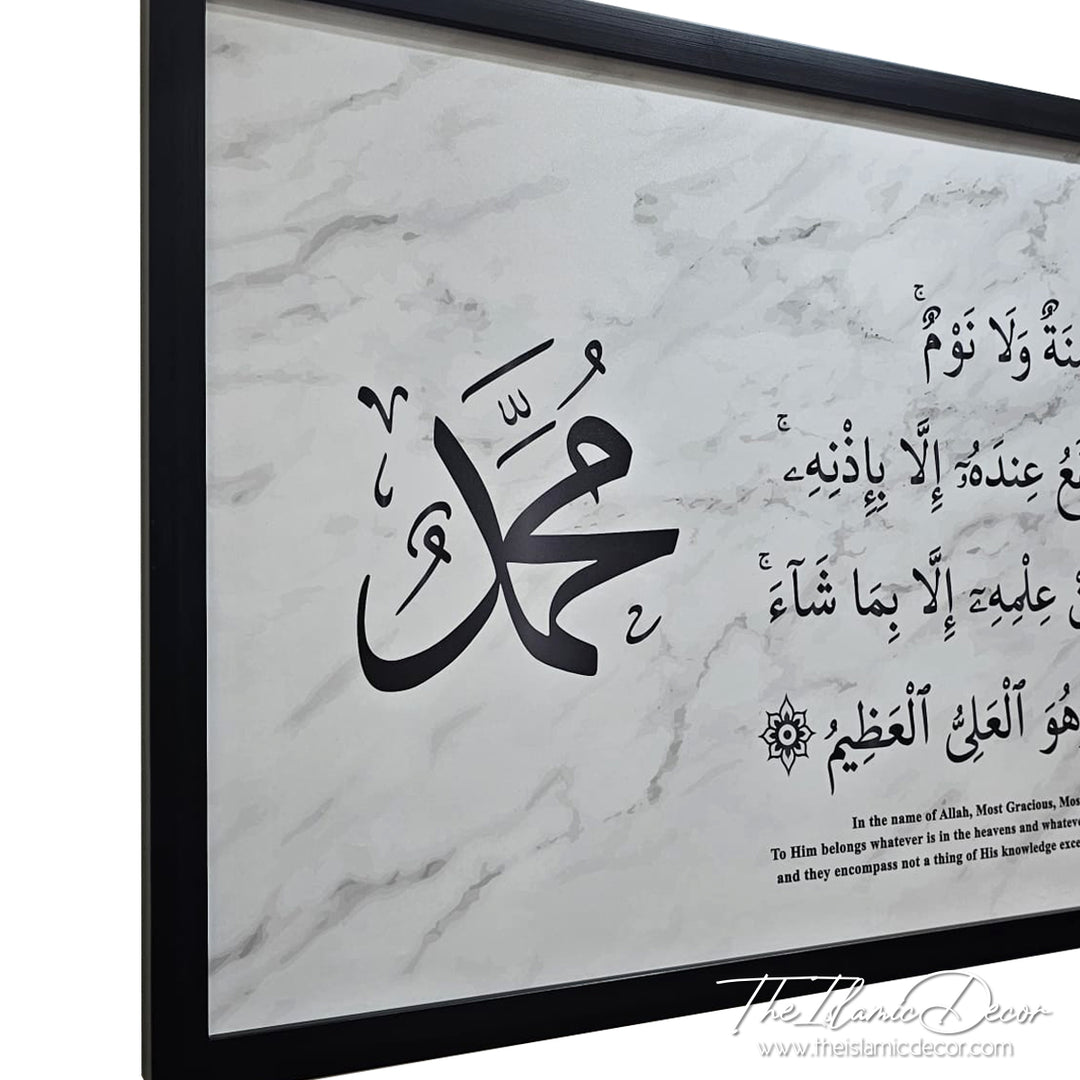 مُحَمَّدٌ
سِنَةٌ وَلَا نَوْمٌ ۚ
عِندَهُۥٓ إِلَّا بِإِذْنِهِۦ ۚ
عِلْمِهِۦٓ إِلَّا بِمَا شَآءَ ۚ
هُوَ ٱلْعَلِىُّ ٱلْعَظِيمُ
In the name of Allah, Most Gracious, Mos
To Him belongs whatever is in the heavens and whateve
and they encompass not a thing of His knowledge exce
The Islamic Decor
www.theislamicdecor.com